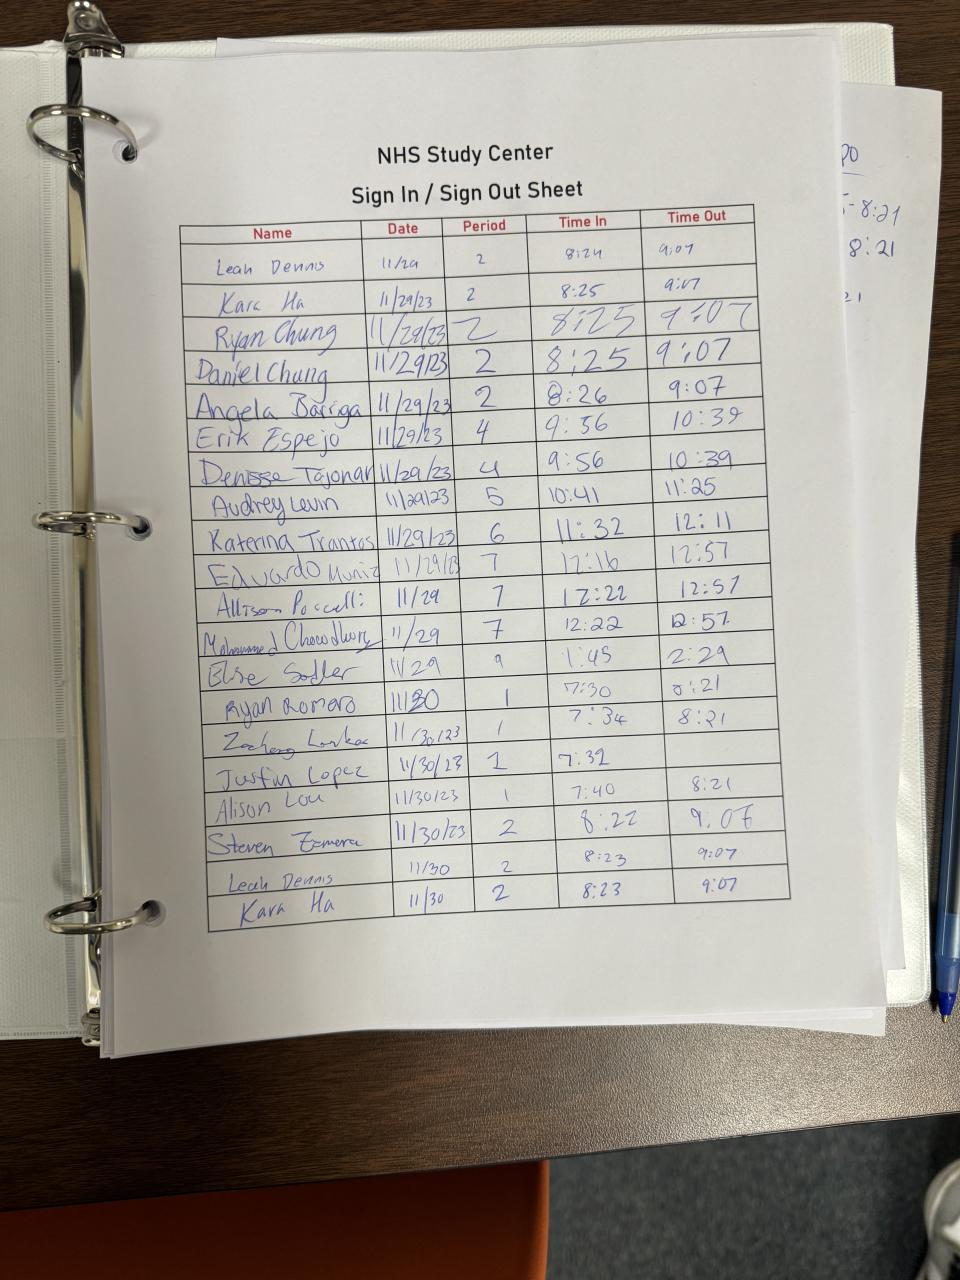 NHS Study Center
Sign In / Sign Out Sheet
Name Date Period Time In Time Out
Leah Dennis 11/29 2 8:24 9:07
Kara Ha 11/29/23 2 8:25 9:07
Ryan Chung 11/29/23 2 8:25 9:07
Daniel Chung 11/29/23 2 8:25 9:07
Angela Barriga 11/29/23 2 8:26 9:07
Erik Espejo 11/29/23 4 9:56 10:39
Denisse Tajonar 11/29/23 4 9:56 10:39
Audrey Levin 11/29/23 5 10:41 11:25
Katerina Trantos 11/29/23 6 11:32 12:11
Eduardo Muniz 11/29/23 7 12:16 12:57
Allison 11/29 7 12:22 12:57
Mohammed Chowdhury 11/29 7 12:22 12:57
Elise Sadler 11/29 9 1:45 2:29
Ryan Romero 11/30 1 7:30 8:21
11/30/23 1 7:34 8:21
Justin Lopez 11/30/23 1 7:39
Alison Lou 11/30/23 1 7:40 8:21
Steven Zamora 11/30/23 2 8:22 9:07
Leah Dennis 11/30 2 8:23 9:07
Kara Ha 11/30 2 8:23 9:07
8:21
8:21
21